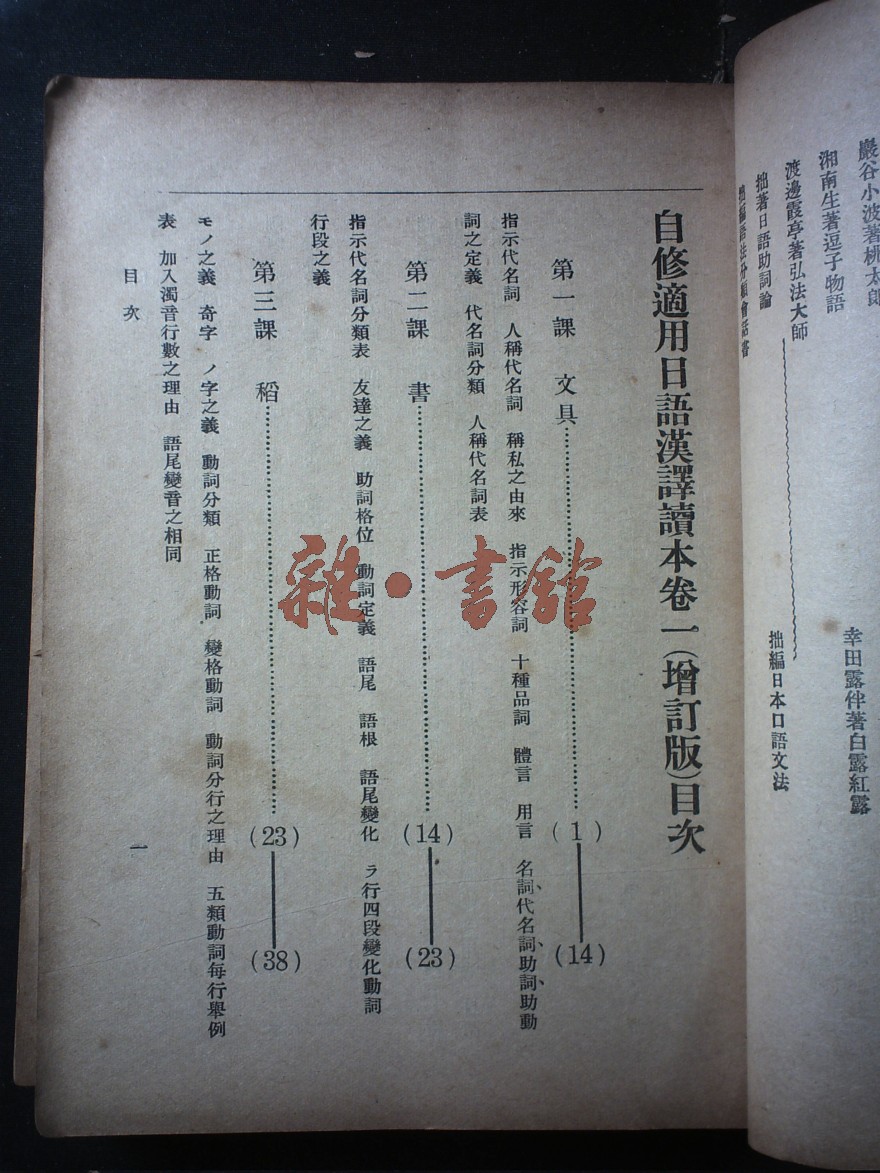 巖谷小波著桃太郎
湘南生著逗子物語
幸田露伴著白露紅露
渡邊霞亭著弘法大師
拙著日語助詞論
拙編日本口語文法
拙編語法分類會話書
自修適用日語漢譯讀本卷一(增訂版)目次
第一課 文具……(1)——(14)
指示代名詞 人稱代名詞 稱私之由來 指示形容詞 十種品詞 體言 用言 名詞、代名詞、助詞、助動
詞之定義 代名詞分類 人稱代名詞表
第二課 書……(14)——(23)
指示代名詞分類表 友達之義 助詞格位 動詞定義 語尾 語根 語尾變化 ラ行四段變化動詞
行段之義
第三課 稻……(23)——(38)
モノ之義 奇字 ノ字之義 動詞分類 正格動詞 變格動詞 動詞分行之理由 五類動詞每行舉例
表 加入濁音行數之理由 語尾變音之相同
目次
一
雜·書館